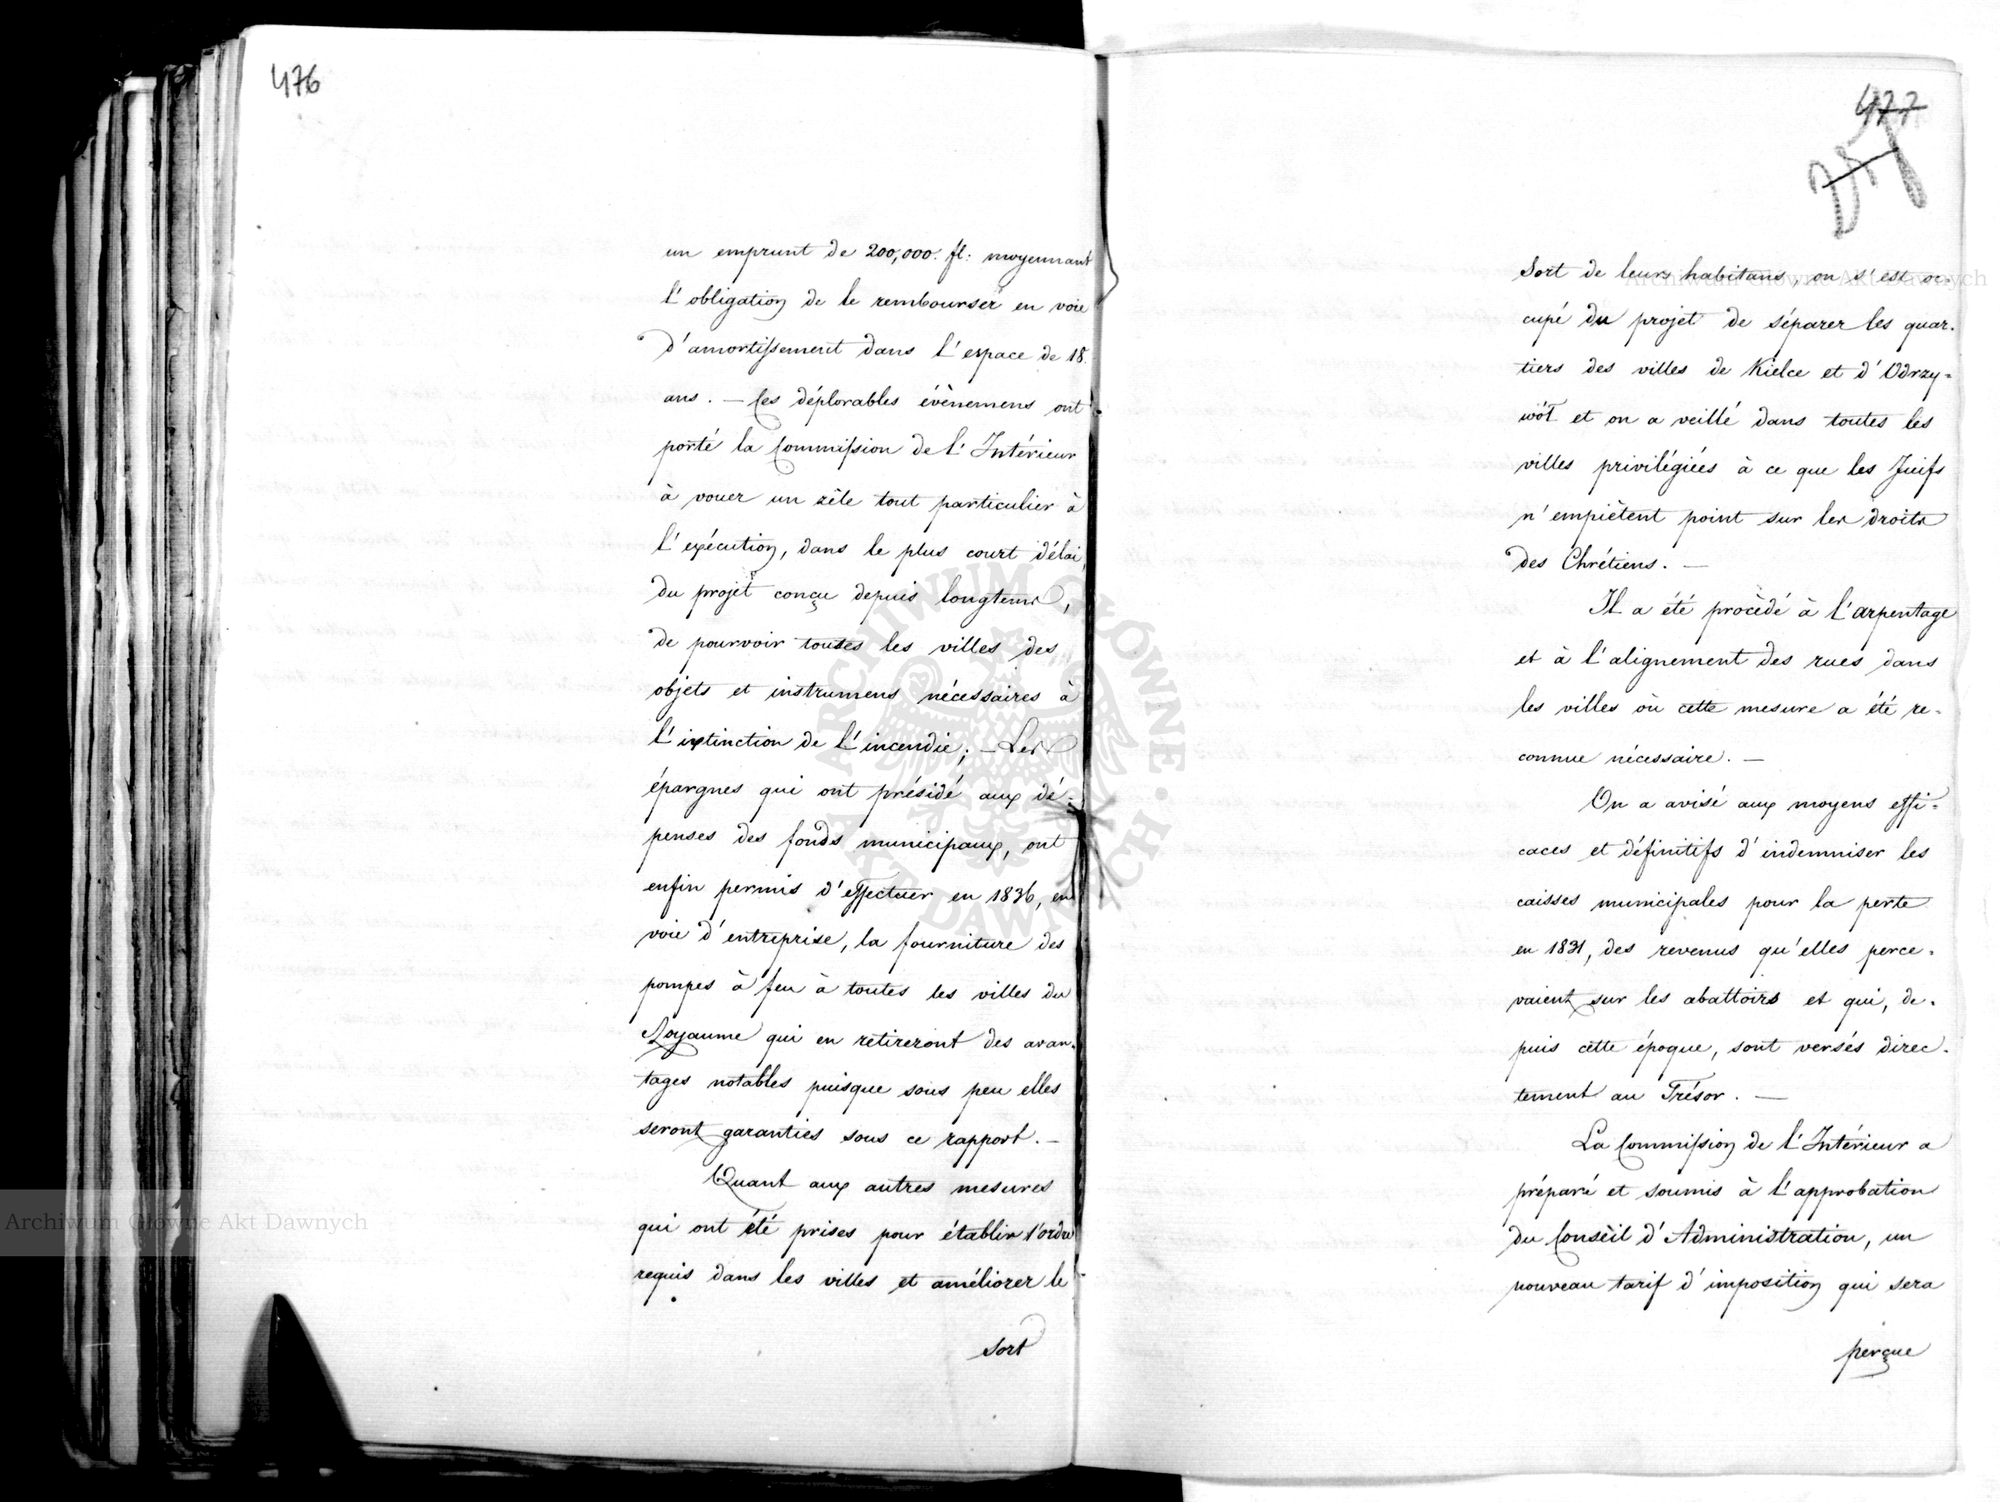 476
un emprunt de 200,000. fl: moyennant
l'obligation de le rembourser en voie
d'amortissement dans l'espace de 18.
ans. — Ces déplorables évènemens ont
porté la Commission de l'Intérieur
à vouer un zèle tout particulier à
l'exécution, dans le plus court délai,
du projet conçu depuis longtems,
de pourvoir toutes les villes des
objets et instrumens nécessaires à
l'extinction de l'incendie; — Les
épargnes qui ont présidé aux dé-
penses des fonds municipaux, ont
enfin permis d'effectuer en 1836, en
voie d'entreprise, la fourniture des
pompes à feu à toutes les villes du
Royaume qui en retireront des avan-
tages notables puisque sous peu elles
seront garanties sous ce rapport. —
Quant aux autres mesures
qui ont été prises pour établir l'ordre
requis dans les villes et améliorer le
sort
477
Sort de leurs habitans, on s'est oc-
cupé du projet de séparer les quar-
tiers des villes de Kielce et d'Odrzy-
wół et on a veillé dans toutes les
villes privilégiées à ce que les Juifs
n'empiètent point sur les droits
des Chrétiens. —
Il a été procèdé à l'arpentage
et à l'alignement des rues dans
les villes où cette mesure a été re-
connue nécessaire. —
On a avisé aux moyens effi-
caces et définitifs d'indemniser les
caisses municipales pour la perte
en 1831, des revenus qu'elles perce-
vaient sur les abattoirs et qui, de-
puis cette époque, sont versés direc-
tement au Trésor. —
La Commission de l'Intérieur a
préparé et soumis à l'approbation
du Conseil d'Administration, un
nouveau tarif d'imposition qui sera
perçue
Archiwum Główne Akt Dawnych
Archiwum Główne Akt Dawnych
ARCHIWUM GŁÓWNE AKT DAWNYCH